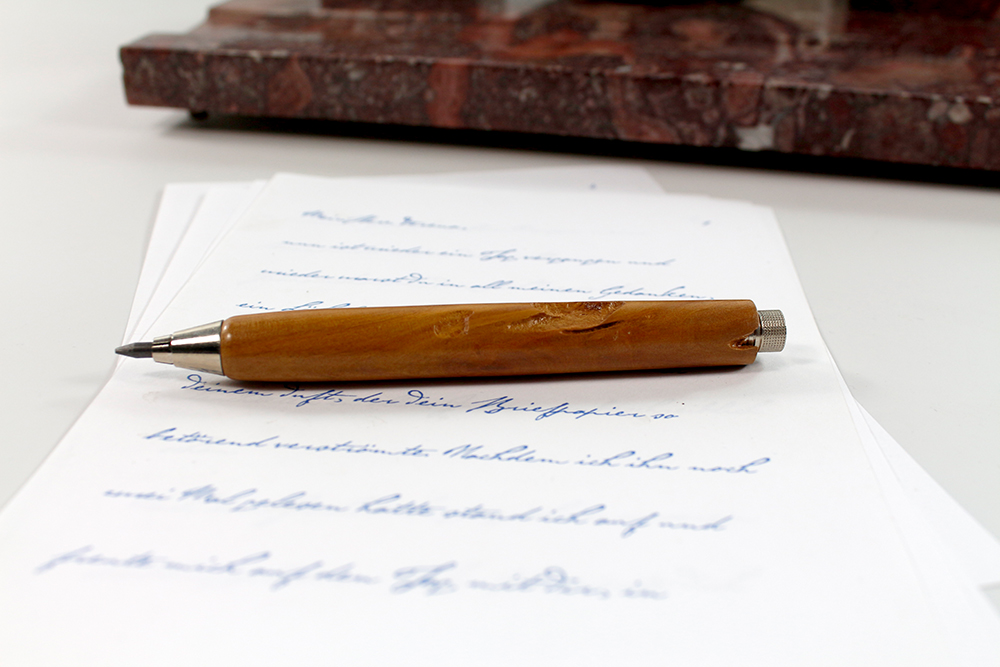 nun ist wieder ein Tag vergangen und
wieder warst Du in all meinen Gedanken.
ein
deinem Duft, der dein Briefpapier so
betörend verströmte. Nachdem ich ihn noch
zwei Mal gelesen hatte stand ich auf und
freute mich auf den Tag mit Dir, in